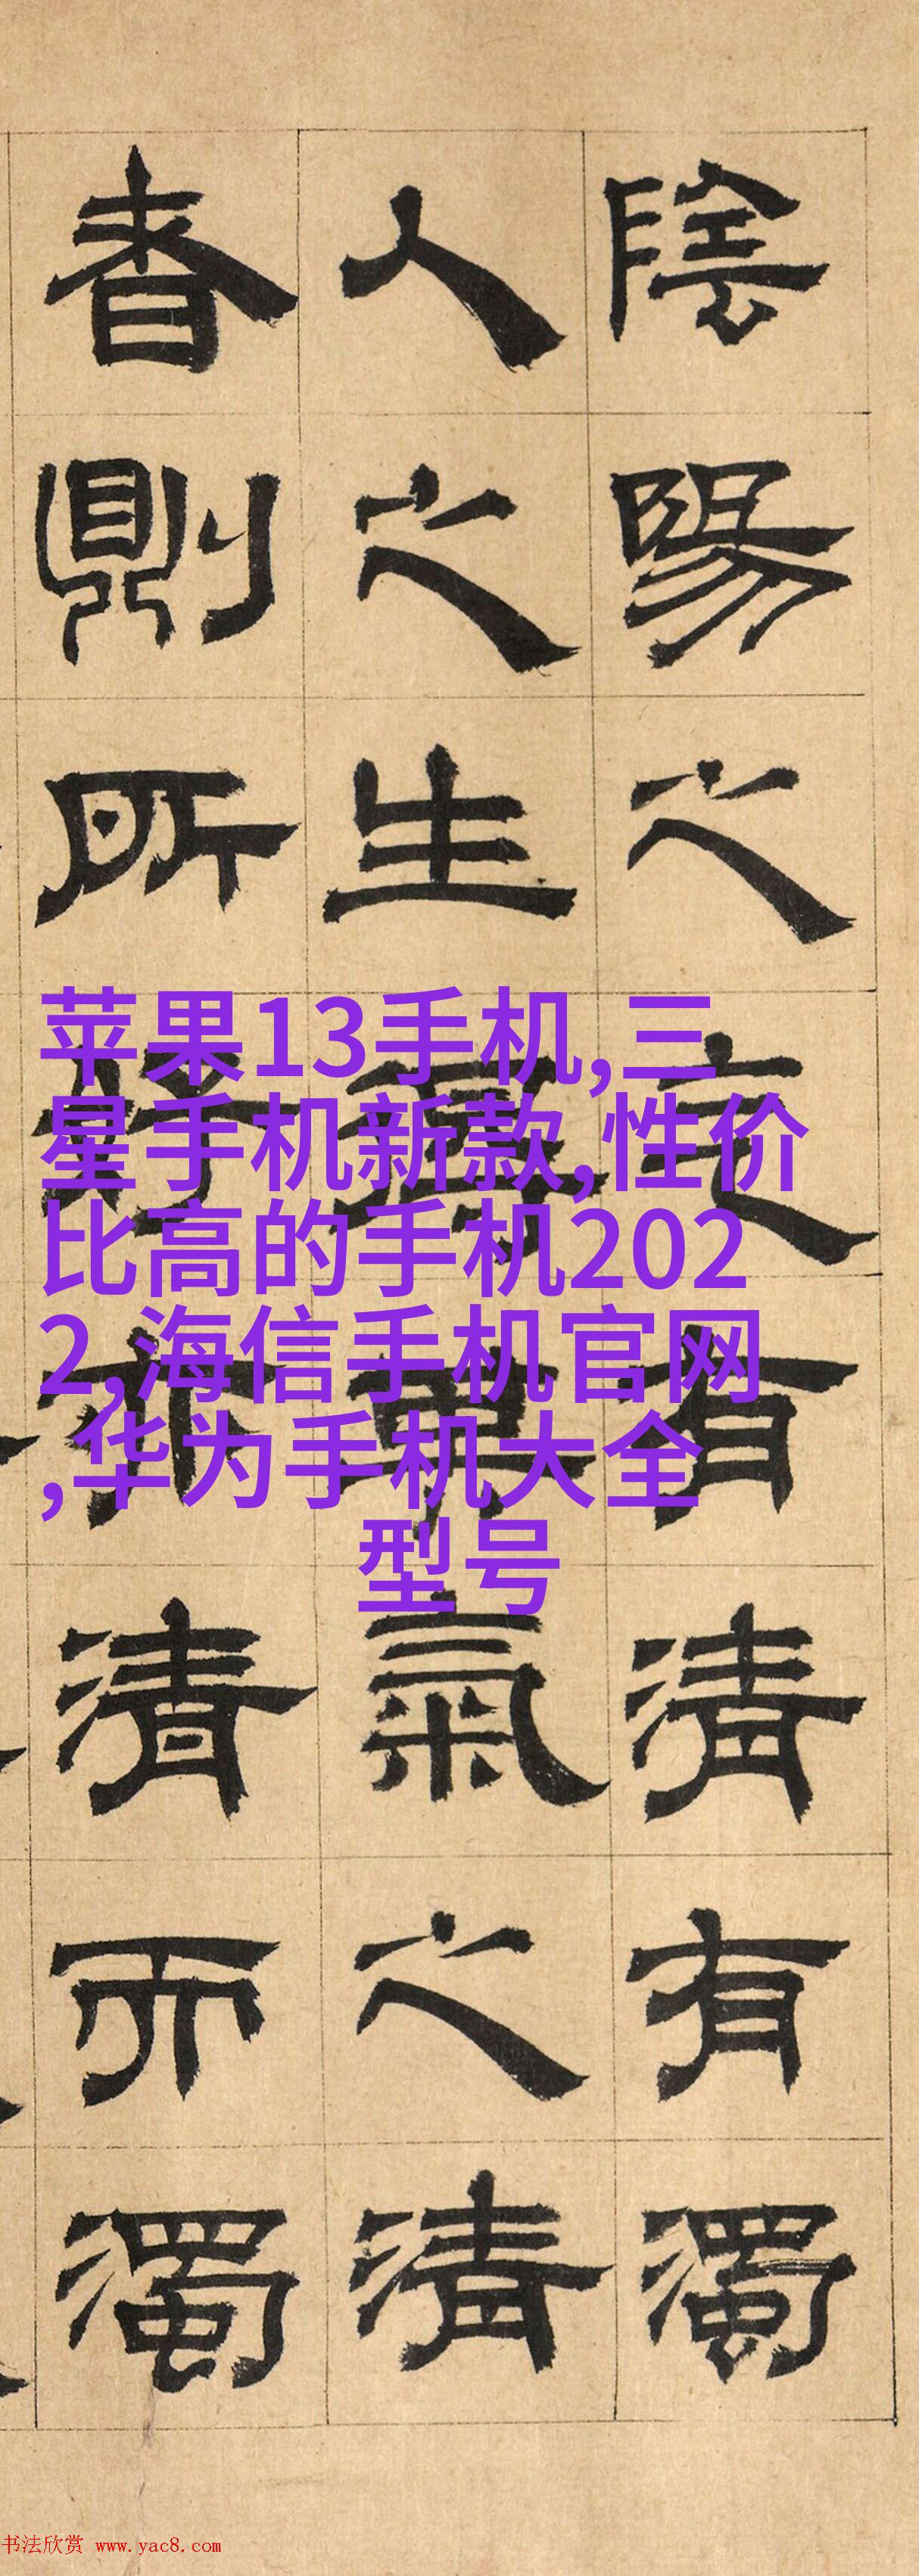 陰陽之有清有濁
人之生氣之清
者則所清而濁
苹果13手机,三
星手机新款,性价
比高的手机202
2,海信手机官网
,华为手机大全
型号
书法欣赏 www.yac8.com